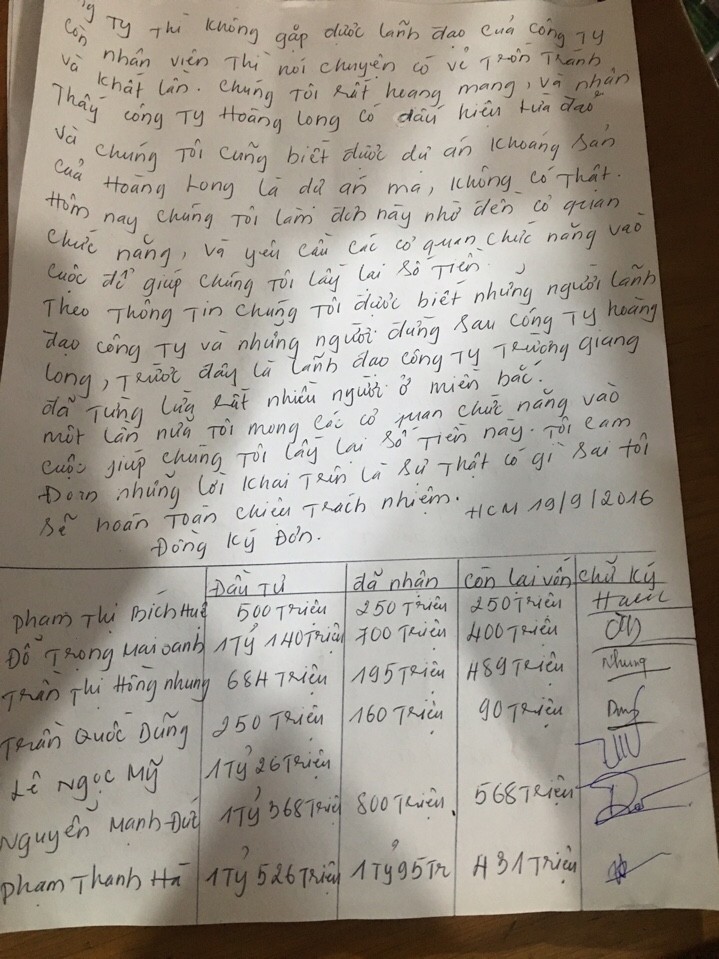 Ty Thì không gặp được lãnh đạo của công Ty
còn nhân viên Thì nói chuyện có vẻ Trốn Tránh
và khất lần. chúng Tôi rất hoang mang, và nhận
Thấy công Ty Hoàng Long có dấu hiệu lừa đảo
và chúng Tôi cũng biết được dự án khoáng sản
của Hoàng Long là dự án ma, không có Thật.
Hôm nay chúng Tôi làm đơn này nhờ đến cơ quan
chức năng, và yêu cầu các cơ quan chức năng vào
cuộc để giúp chúng Tôi lấy lại số Tiền.
Theo Thông Tin chúng Tôi được biết những người lãnh
đạo công Ty và những người đứng sau công Ty hoàng
long, Trước đây là lãnh đạo công Ty Trường giang
đã Từng lừa rất nhiều người ở miền bắc.
một lần nữa Tôi mong các cơ quan chức năng vào
cuộc giúp chúng Tôi lấy lại số Tiền này. Tôi cam
Đoan những lời khai Trên là sự Thật có gì sai tôi
sẽ hoàn Toàn chiệu Trách nhiệm. HCM 19/9/2016
Đồng Ký Đơn.
Đầu Tư đã nhận còn lại vốn chữ ký
Phạm Thị Bích Huệ 500 Triệu 250 Triệu 250 Triệu
Đỗ Trọng Mai oanh 1Tỷ 140 Triệu 700 Triệu 400 Triệu
Trần Thị Hồng nhung 684 Triệu 195 Triệu 489 Triệu Nhung
Trần Quốc Dũng 250 Triệu 160 Triệu 90 Triệu
Lê Ngọc Mỹ 1Tỷ 26 Triệu
Nguyễn Mạnh Đức 1Tỷ 368 Triệu 800 Triệu 568 Triệu
Phạm Thanh Hà 1Tỷ 526 Triệu 1Tỷ 95 Tr 431 Triệu